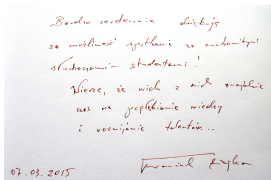 Bardzo serdecznie dziękuję
za możliwość spotkania ze znakomitymi
słuchaczami - studentami!
Wierzę, że wielu z nich znajdzie
czas na pogłębianie wiedzy
i rozwijanie talentów...
07.03.2015